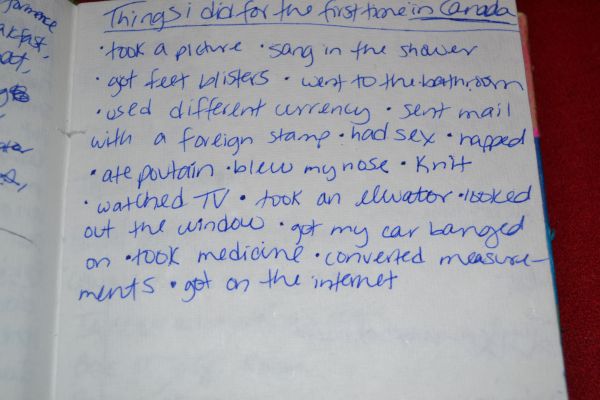 Things i did for the first time in Canada
• took a picture • sang in the shower
• got feet blisters • went to the bathroom
• used different currency • sent mail
with a foreign stamp • had sex • napped
• ate poutain • blew my nose • Knit
• watched TV • took an elevator • looked
out the window • got my car banged
on • took medicine • converted measure-
ments • got on the internet